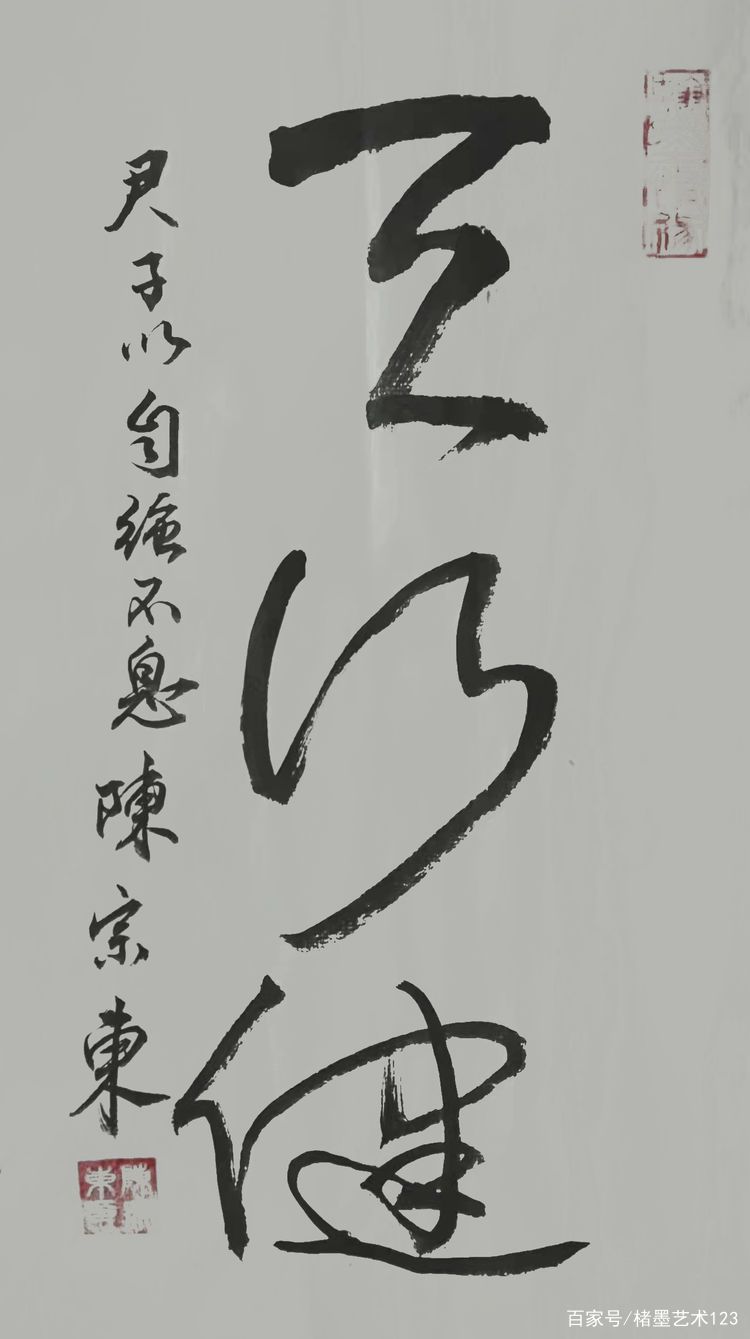 天行健
君子以自強不息陳宗東
百家号/楮墨艺术123